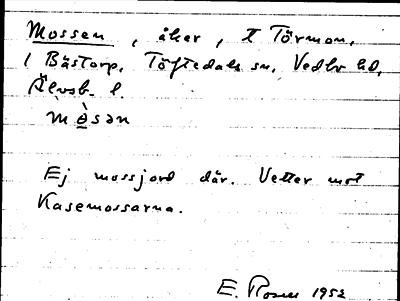 Mossen, åker, t Törmon,
l Bästorp, Töftedals sn, Vedbo hd,
Älvsb. l.
m ò̱sən
Ej mossjord där. Vetter mot
Kasemossarna.
E. Rosén 1952